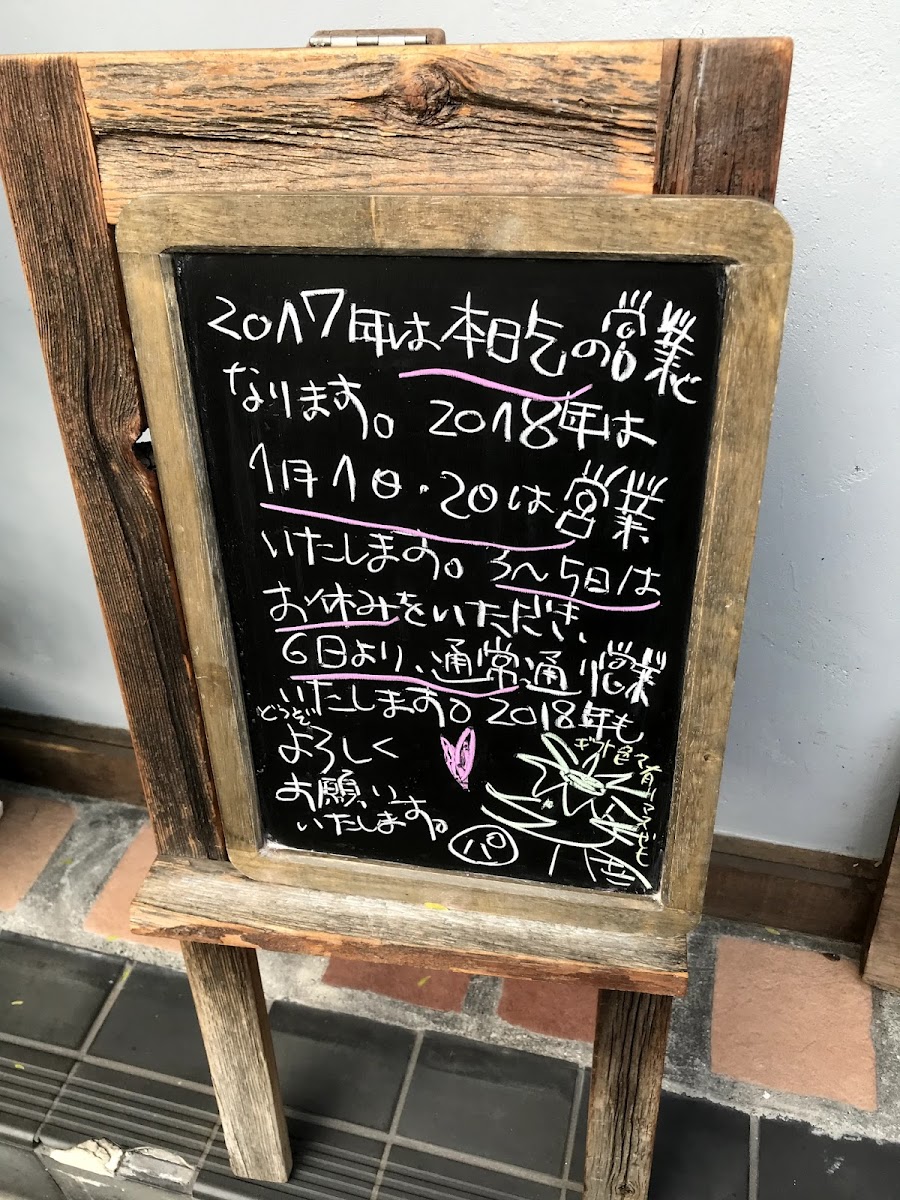 2017年は本日迄の営業と
なります。2018年は
1月1日・2日は営業
いたします。3〜5日は
お休みをいただき、
6日より、通常通り営業
いたします。2018年も
どうぞ
よろしく
お願い
いたします。
パ